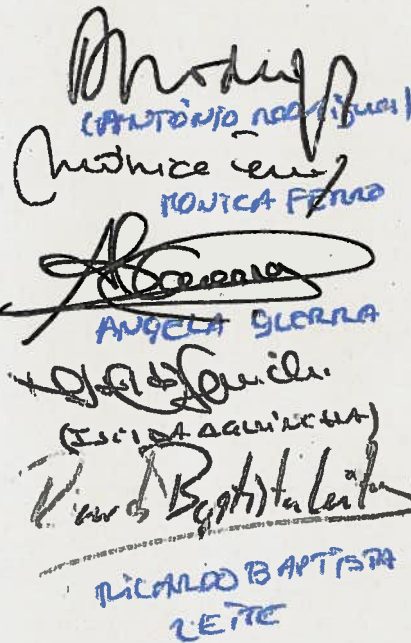 (ANTÓNIO RODRIGUES)
Mónica Ferro
MONICA FERRO
ANGELA GUERRA
(ISILDA AGUINCHA)
Ricardo Baptista Leite
RICARDO BAPTISTA
LEITE